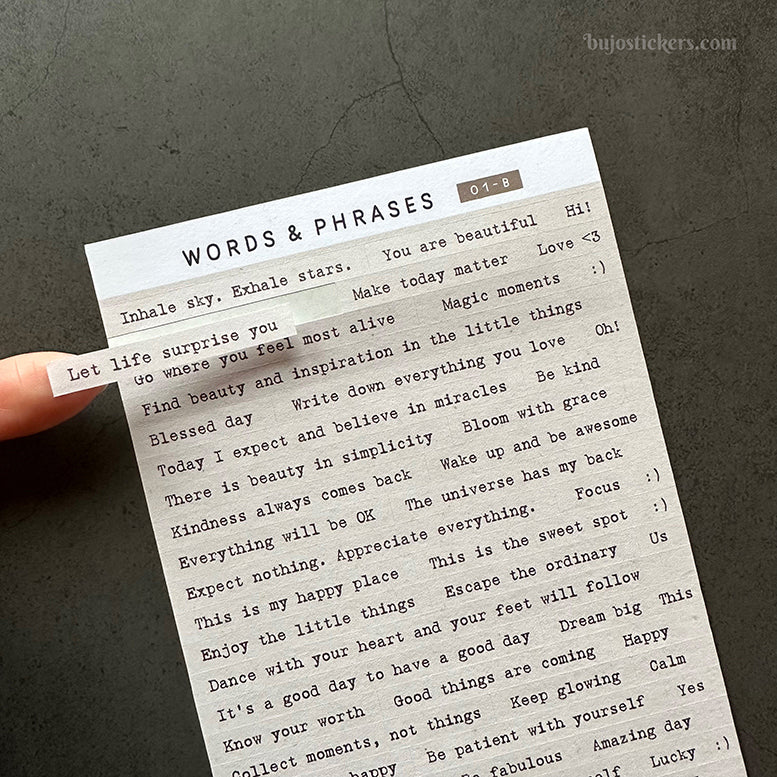 bujostickers.com
WORDS & PHRASES 01-B
Inhale sky. Exhale stars. You are beautiful Hi!
Let life surprise you Make today matter Love <3
Go where you feel most alive Magic moments :)
Find beauty and inspiration in the little things
Blessed day Write down everything you love Oh!
Today I expect and believe in miracles Be kind
There is beauty in simplicity Bloom with grace
Kindness always comes back Wake up and be awesome
Everything will be OK The universe has my back
Expect nothing. Appreciate everything. Focus :)
This is my happy place This is the sweet spot :)
Enjoy the little things Escape the ordinary Us
Dance with your heart and your feet will follow
It's a good day to have a good day Dream big This
Know your worth Good things are coming Happy
Collect moments, not things Keep glowing Calm
happy Be patient with yourself Yes
fabulous Amazing day
Lucky :)